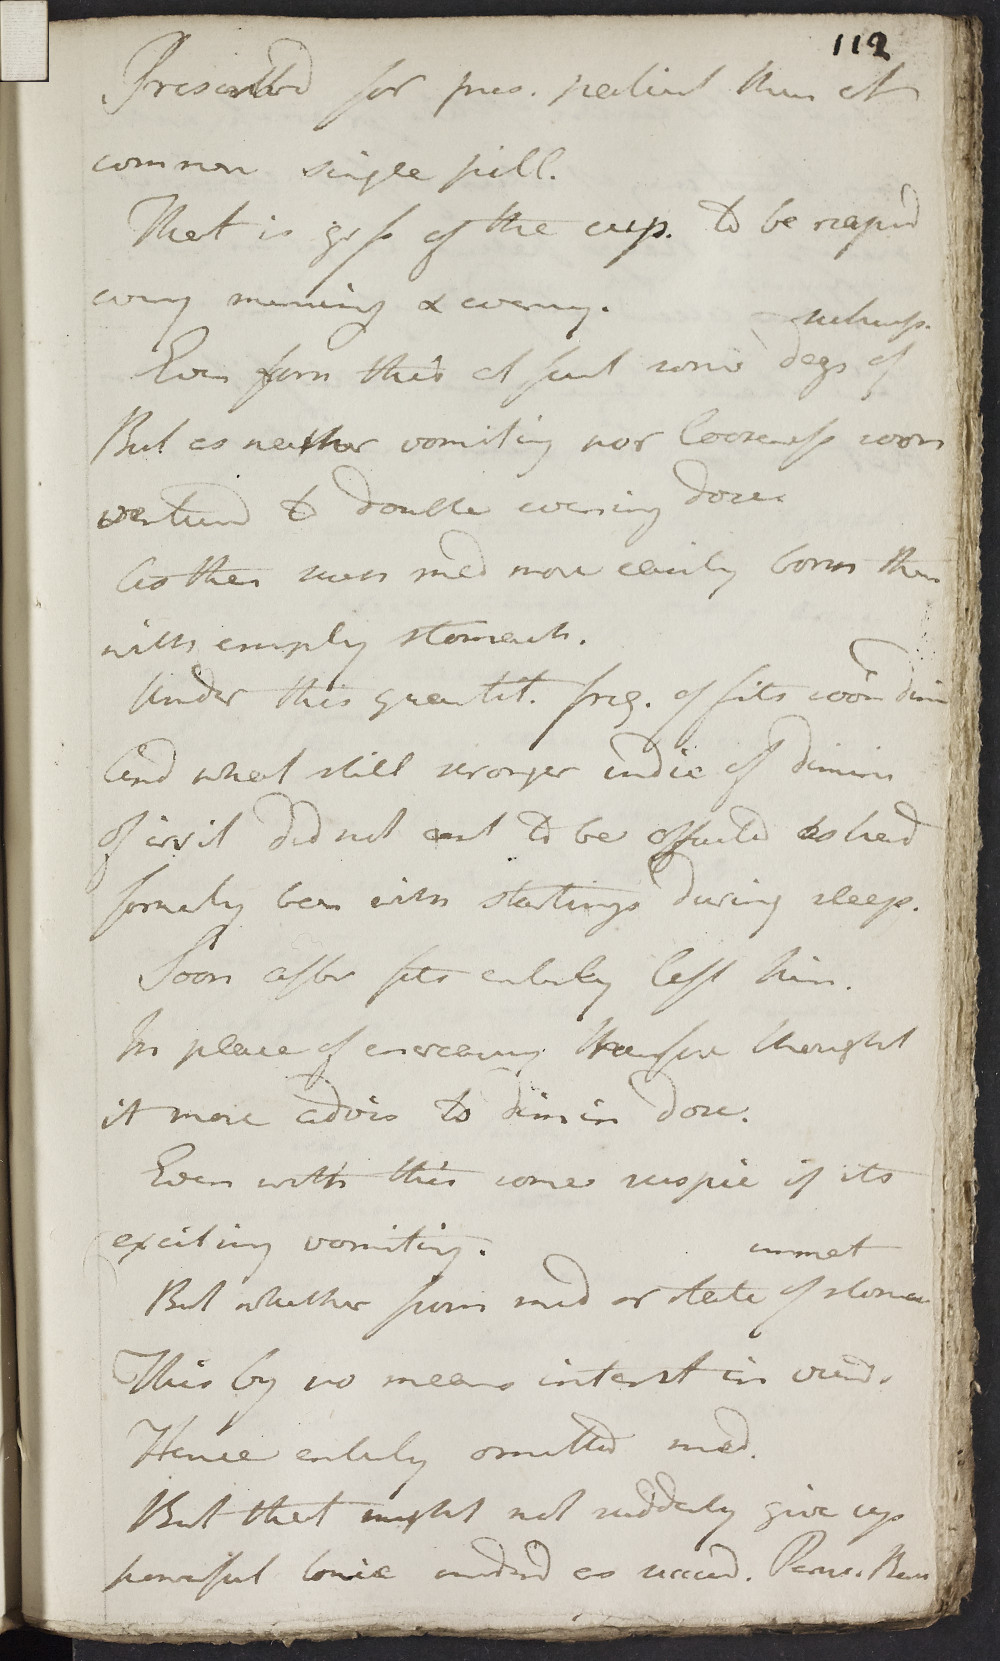 112
Prescribed for pres. patient than at
common single pill.
That is grß of the cup. to be reped
every morning & evening.
Even from this at first some degr of
But as neither vomiting nor looseness soon
ventured to double evening dose
As then seen med more easily born than
with empty stomach.
Under this quantit. freq. of fits soon dimi
And what still stronger indic of dimin
of irrit did not to be affected as had
formerly been with startings during sleep.
Soon after fits entirely left him.
In place of increasing therefore thought
it more advis to dimin dose.
Even with this some suspic of its
exciting vomiting.
unnat
But whether from med or state of stomac
This by no means intent in view.
Hence entirely omitted med.
But that might not suddenly give up
powerful tonic as succed. Peruv. Bar